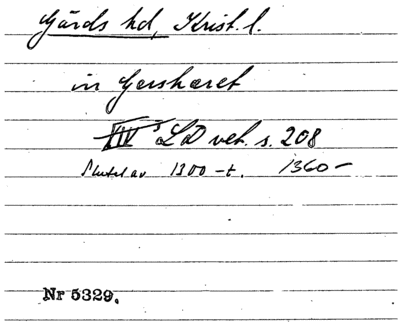 Gärds hd, Krist. l.
in Gersharet
XIV LD vet. s. 208
Slutet av 1300-t. 1360-
Nr 5329.